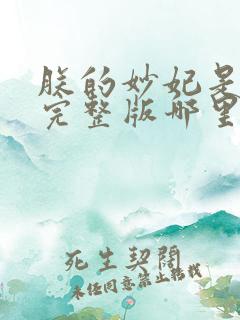 朕的妙妃是
完整版哪里
死生契阔
未经同意禁止转载